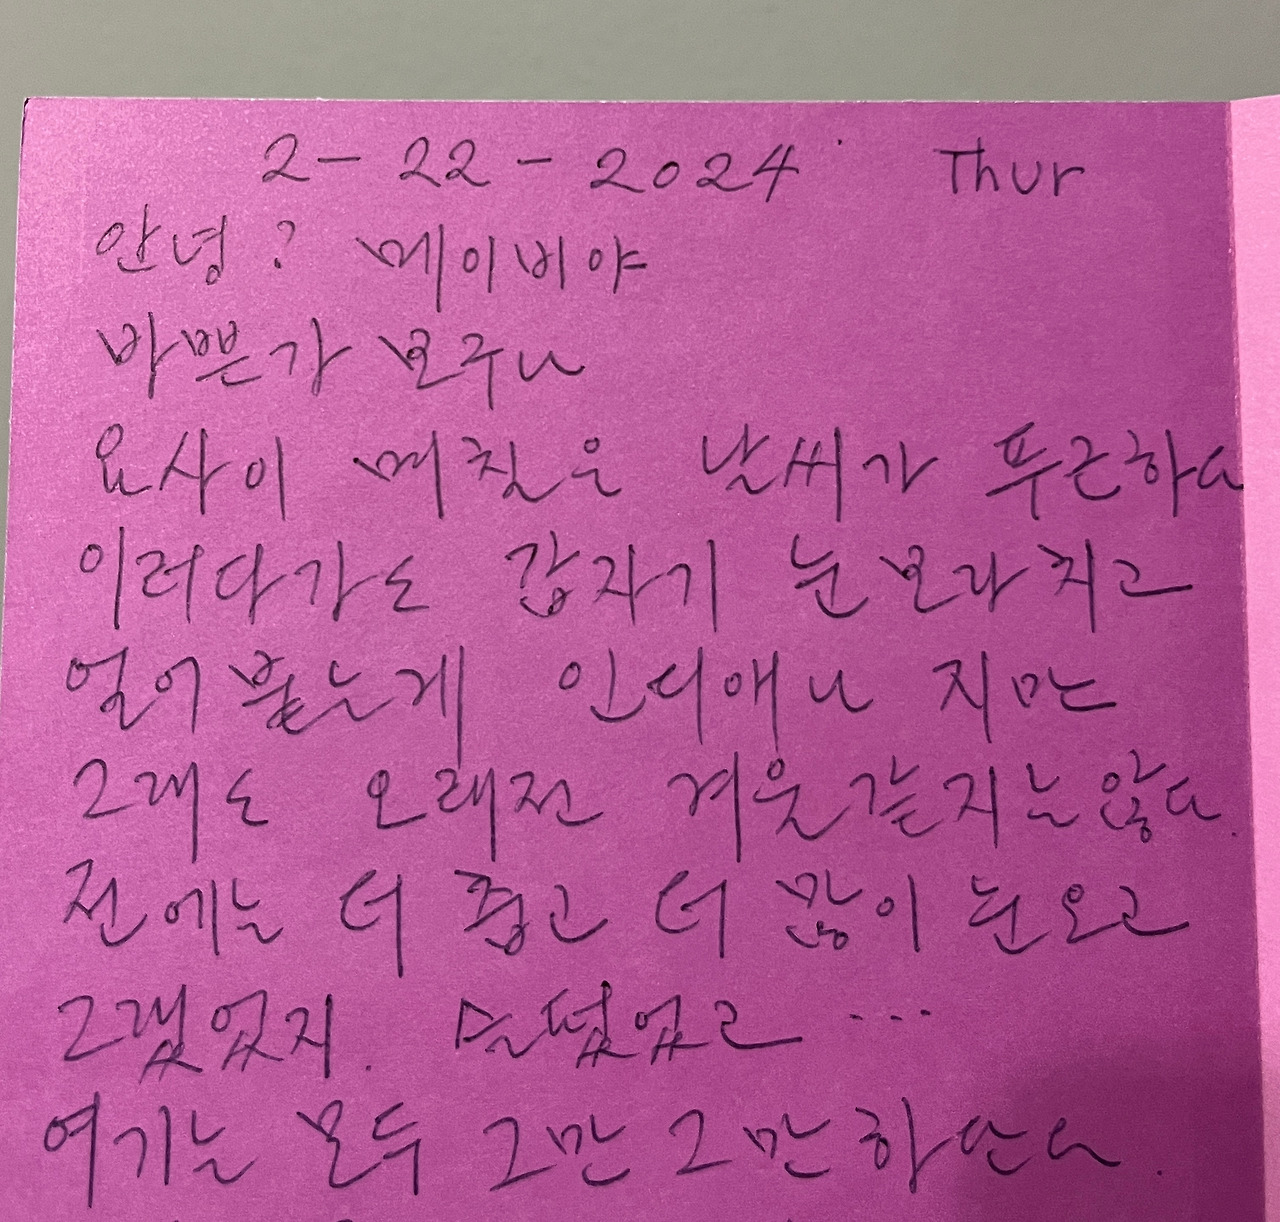 2-22-2024 Thur
안녕? 메이비야
바쁜가 보구나
요사이 메칠은 날씨가 푸근하다
이러다가도 갑자기 눈보라 치고
얼어 붙는게 인디애나 지만
그래도 오래전 겨울같지는 않다.
전에는 더 춥고 더 많이 눈오고
그랬었지. 덥었고 ...
여기는 모두 그만 그만 하단다.